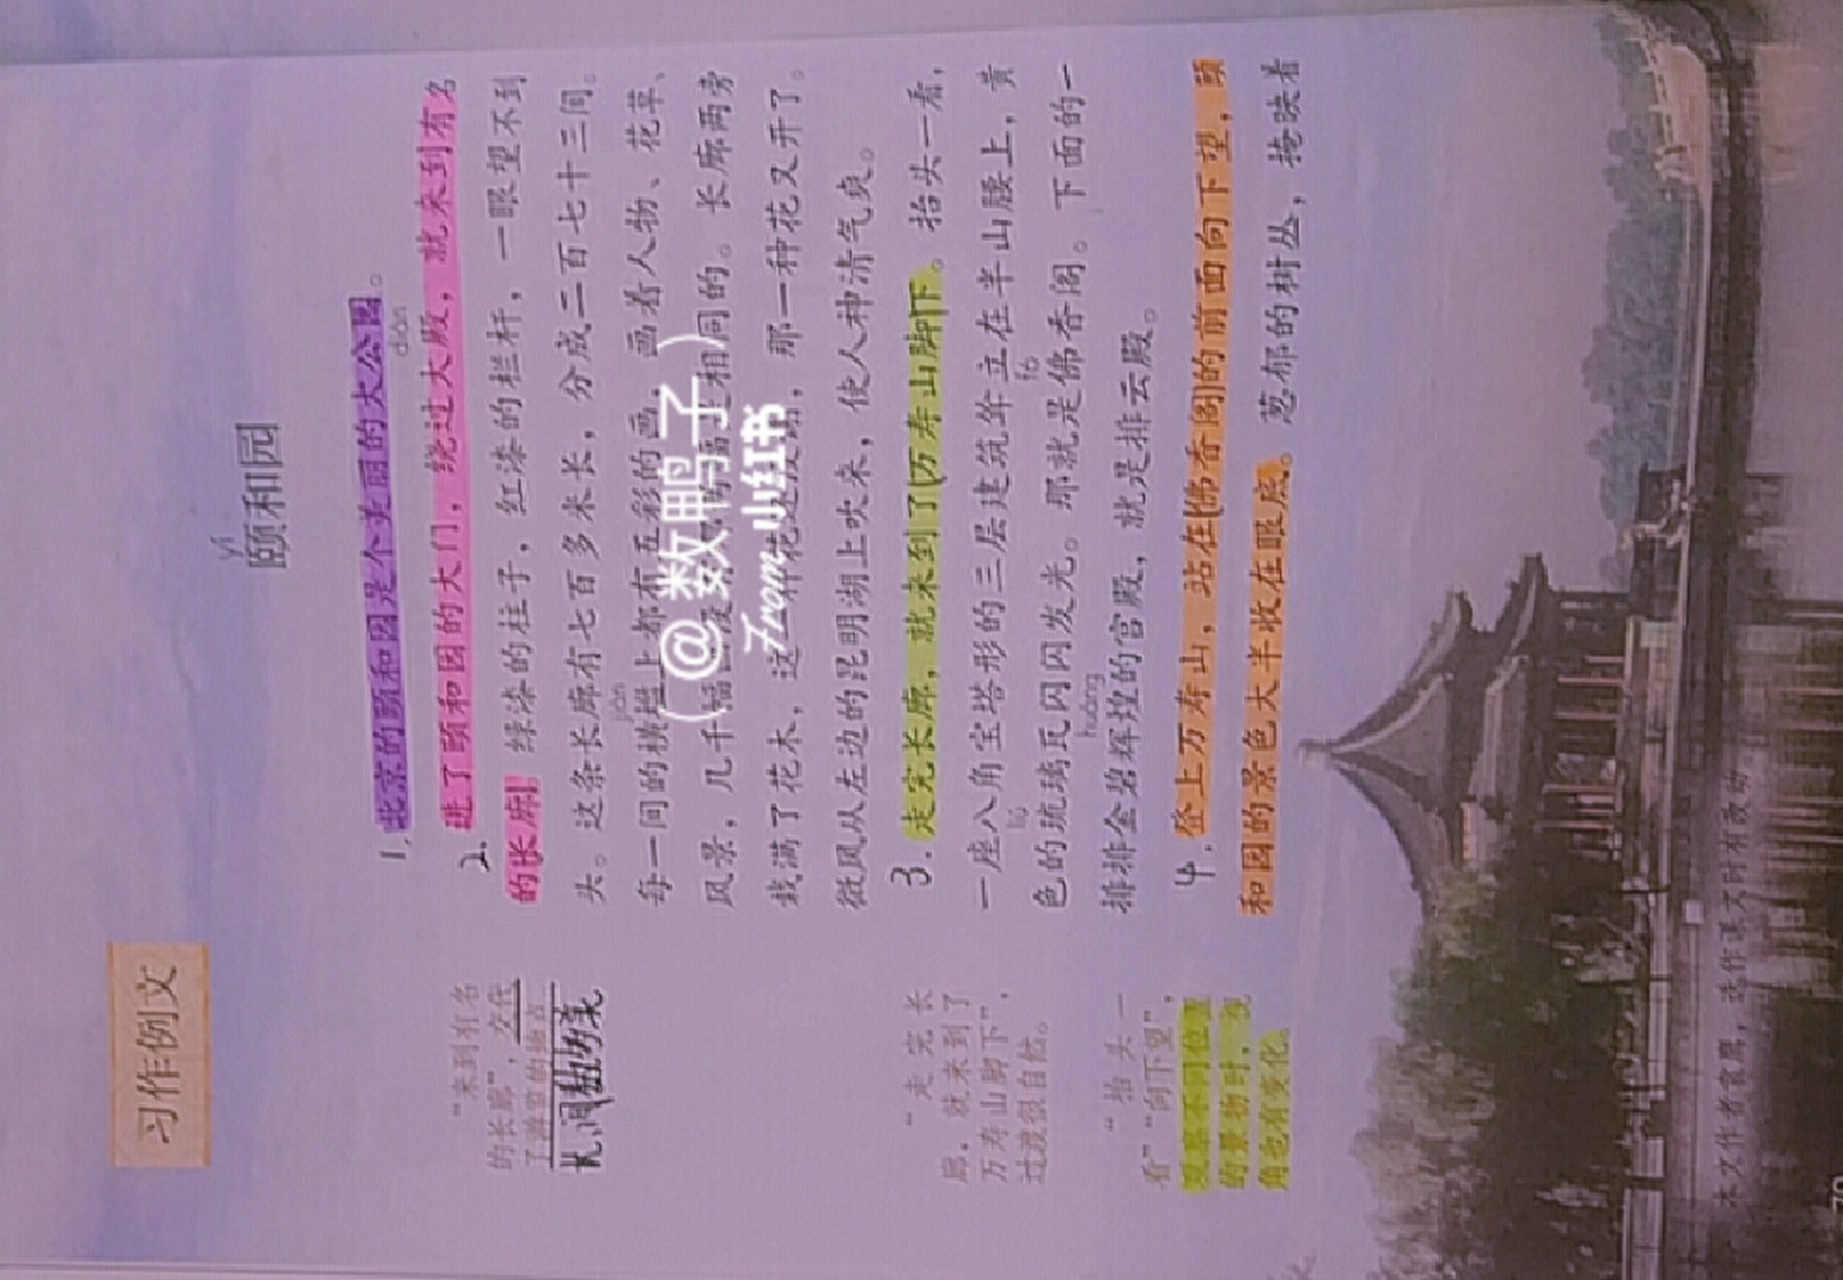 习作例文
yí
颐和园
1.北京的颐和园是个美丽的大公园。
diàn
2.进了颐和园的大门，绕过大殿，就来到有名
的长廊。绿漆的柱子，红漆的栏杆，一眼望不到
头。这条长廊有七百多米长，分成二百七十三间。
jiàn
每一间的横槛上都有五彩的画，画着人物、花草、
风景，几千幅画没有哪两幅是相同的。长廊两旁
栽满了花木，这一种花还没谢，那一种花又开了。
微风从左边的昆明湖上吹来，使人神清气爽。
3.走完长廊，就来到了万寿山脚下。抬头一看，
一座八角宝塔形的三层建筑耸立在半山腰上，黄
liú fó
色的琉璃瓦闪闪发光。那就是佛香阁。下面的一
huáng
排排金碧辉煌的宫殿，就是排云殿。
4.登上万寿山，站在佛香阁的前面向下望，颐
和园的景色大半收在眼底。葱郁的树丛，掩映着
“来到有名
的长廊”，交代
了游览的地点
“走完长
廊，就来到了
万寿山脚下”，
过渡很自然。
“抬头一
看”“向下望”，
观察不同位置
的景物时，视
角也有变化。
本文作者袁鹰，选作课文时有改动。
79
(@数鸭子)
From 小红书